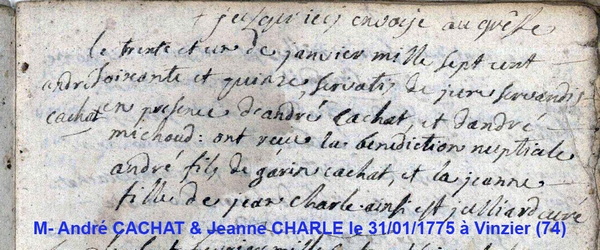 jusqu'icy envoyé au grêfe
le trente et un de janvier mille sept cent
andré soixante et quinze, servatis de jure servandis
cachat en presence d'andré cachat, et d'andré
michoud: ont reçu la bénédiction nuptiale
andré fils de garin cachat, et la jeanne
fille de jean charle ainsi est julliard curé
M- André CACHAT & Jeanne CHARLE le 31/01/1775 à Vinzier (74)
mille